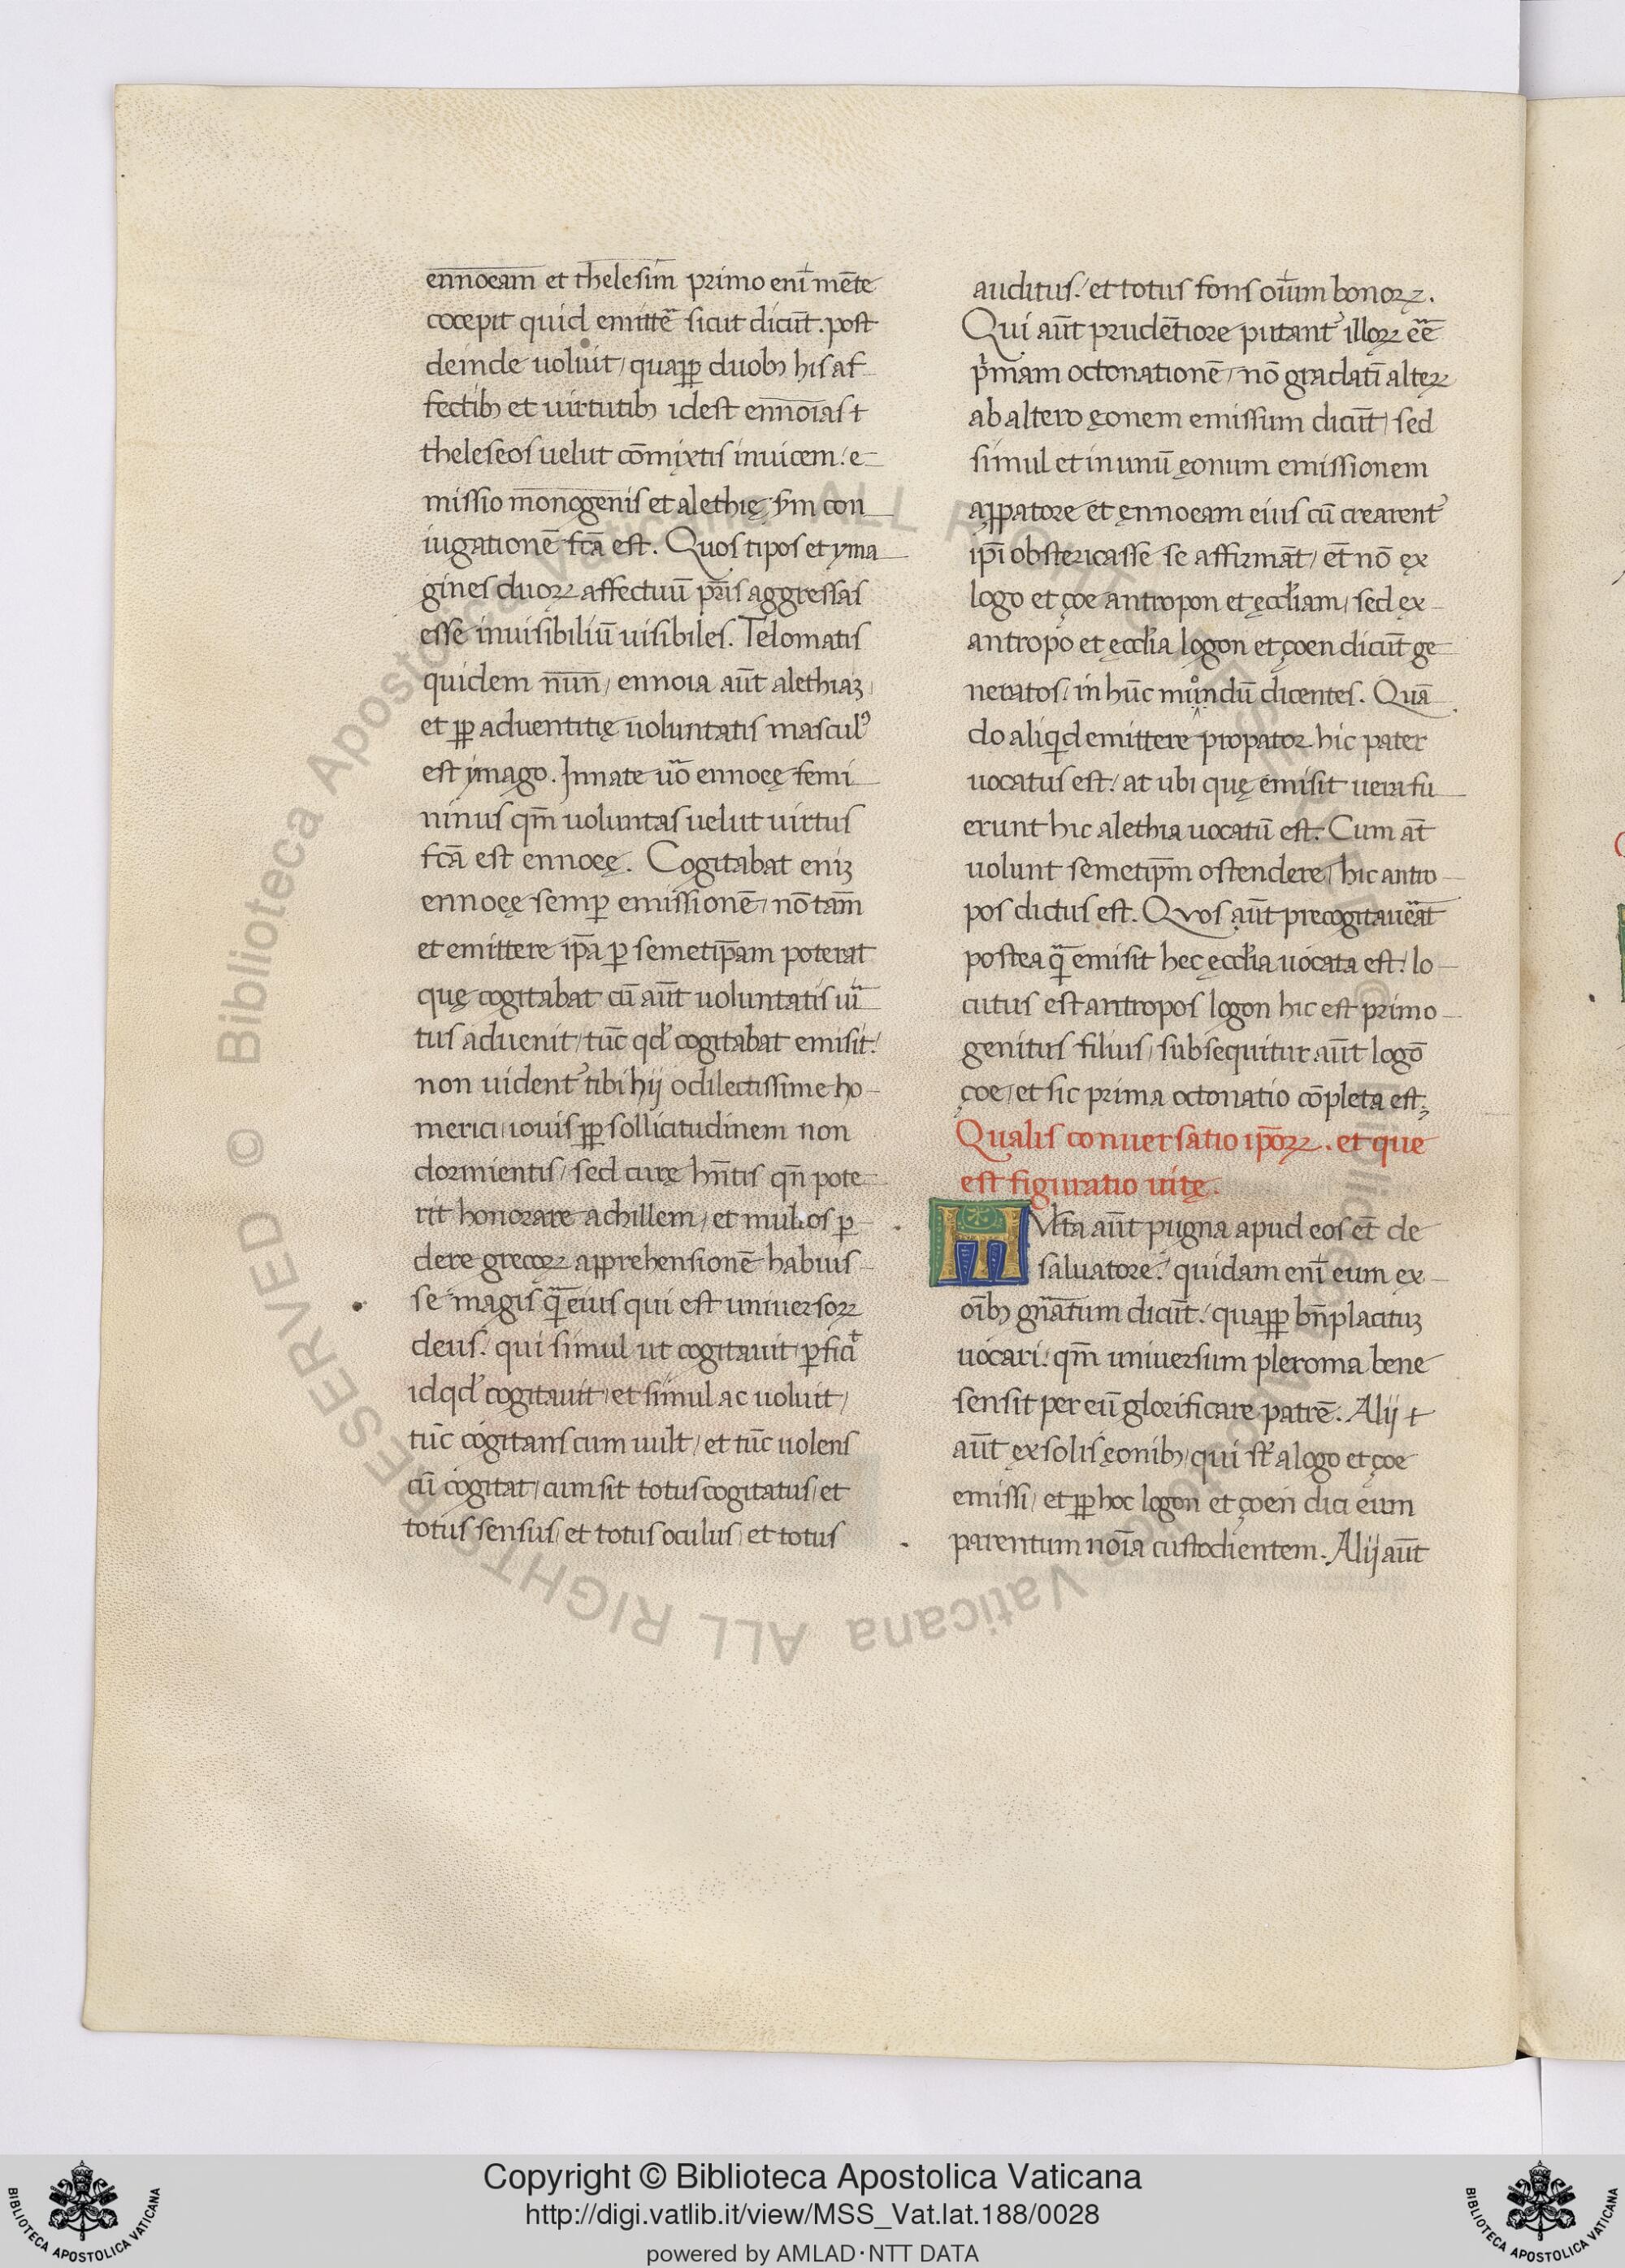 ennoeam et thelesim primo enī mēte
cocepit quid emittē sicut dicūt. post
deinde uoluit, quapp duobꝫ his af
fectibꝫ et uirtutibꝫ idest ennoias ⁊
theleseos uelut cōmixtis inuicem. e-
missio monogenis et alethię ẜm con
iugationē fcā est. Quos tipos et yma
gines duoꝝ affectuū pr̄is aggressas
esse inuisibiliū uisibiles. Telomatis
quidem nun, ennoia aūt alethiaꝫ,
et pp aduentitię uoluntatis masculꝰ
est ymago. Innate uō ennoeę femi
ninus qm̄ uoluntas uelut uirtus
fcā est ennoeę. Cogitabat eniꝫ
ennoeę semp̄ emissionē, nō tam̄
et emittere ip̄a ꝑ semetip̄am poterat
quę cogitabat cū aūt uoluntatis uir
tus aduenit, tūc qd' cogitabat emisit.
non uident' tibi hij o dilectissime ho-
merici iouis pp sollicitudinem non
dormientis, sed curę hn̄tis qn̄ pote
rit honorare achillem, et multos ꝑ-
dere grecoꝝ apprehensionē habuis-
se magis q̄ eius qui est uniuersoꝝ
deus. qui simul ut cogitauit ꝑficit
id qd' cogitauit, et simul ac uoluit,
tūc cogitans cum uult, et tūc uolens
cū cogitat, cum sit totus cogitatus, et
totus sensus, et totus oculus, et totus
auditus. et totus fons oīum bonoꝝ.
Qui aūt prudētiore putant' illoꝝ eē
p'mam octonationē, nō gradatī alteꝝ
ab altero ęonem emissum dicūt, sed
simul et in unū ęonum emissionem
a ppatore et ęnnoeam eius cū crearent'
ip̄i obstericasse se affirmāt, et nō ex
logo et çoe antropon et ęcclīam, sed ex
antropo et ęcclīa logon et çoen dicūt ge
neratos, in hūc mundū dicentes. Quā
do aliqd emittere propator hic pater
uocatus est. at ubi quę emisit uera fu
erunt hic alethia uocatū est. Cum at̄
uolunt semetip̄m ostendere, hic antro-
pos dictus est. Quos aūt precogitauēat
postea q̄ emisit hec ęcclīa uocata est. lo-
cutus est antropos logon hic est primo-
genitus filius, subsequitur aūt logō
çoe, et sic prima octonatio cōpleta est.
Qualis conuersatio ip̄oꝝ. et que
est figuratio uitę.
Mlta aūt pugna apud eos et̄ de
saluatore. quidam enī eum ex-
oībꝫ gn̄atum dicūt. quapp bn̄placituꝫ
uocari. qm̄ uniuersum pleroma bene
sensit per eū glorificare patrē. Alij ⁊
aūt ex solis ęonibꝫ, qui st̄ a logo et çoe
emissi, et pp hoc logon et çoen dici eum
parentum noīa custodientem. Alij aūt
© Biblioteca Apostolica Vaticana ALL RIGHTS RESERVED
Copyright © Biblioteca Apostolica Vaticana
http://digi.vatlib.it/view/MSS_Vat.lat.188/0028
powered by AMLAD·NTT DATA
BIBLIOTECA APOSTOLICA VATICANA
BIBLIOTECA APOSTOLICA VATICANA